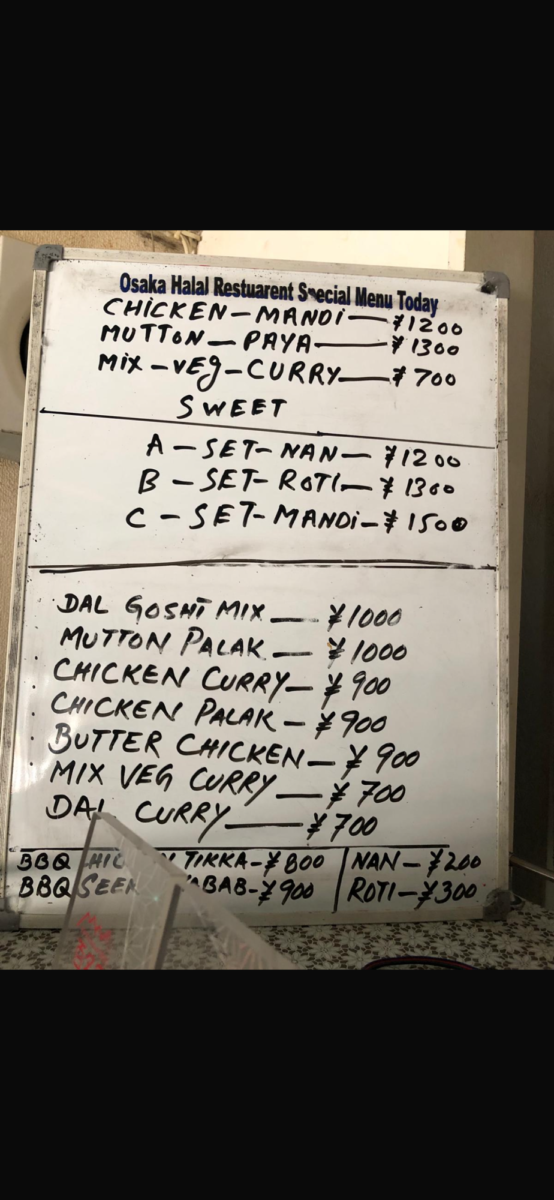 Osaka Halal Restuarent Special Menu Today
CHiCKEN-MANDi-¥1200
MUTTON-PAYA-¥1300
MiX-VEg-CURRY-¥700
SWEET
A-SET-NAN-¥1200
B-SET-ROTI-¥1300
C-SET-MANDi-¥1500
DAL GOSHT MIX-¥1000
MUTTON PALAK-¥1000
CHICKEN CURRY-¥900
CHICKEN PALAK-¥900
BUTTER CHICKEN-¥900
MIX VEG CURRY-¥700
DAL CURRY-¥700
BBQ TIKKA-¥800
BBQ -¥900
NAN-¥200
ROTI-¥300